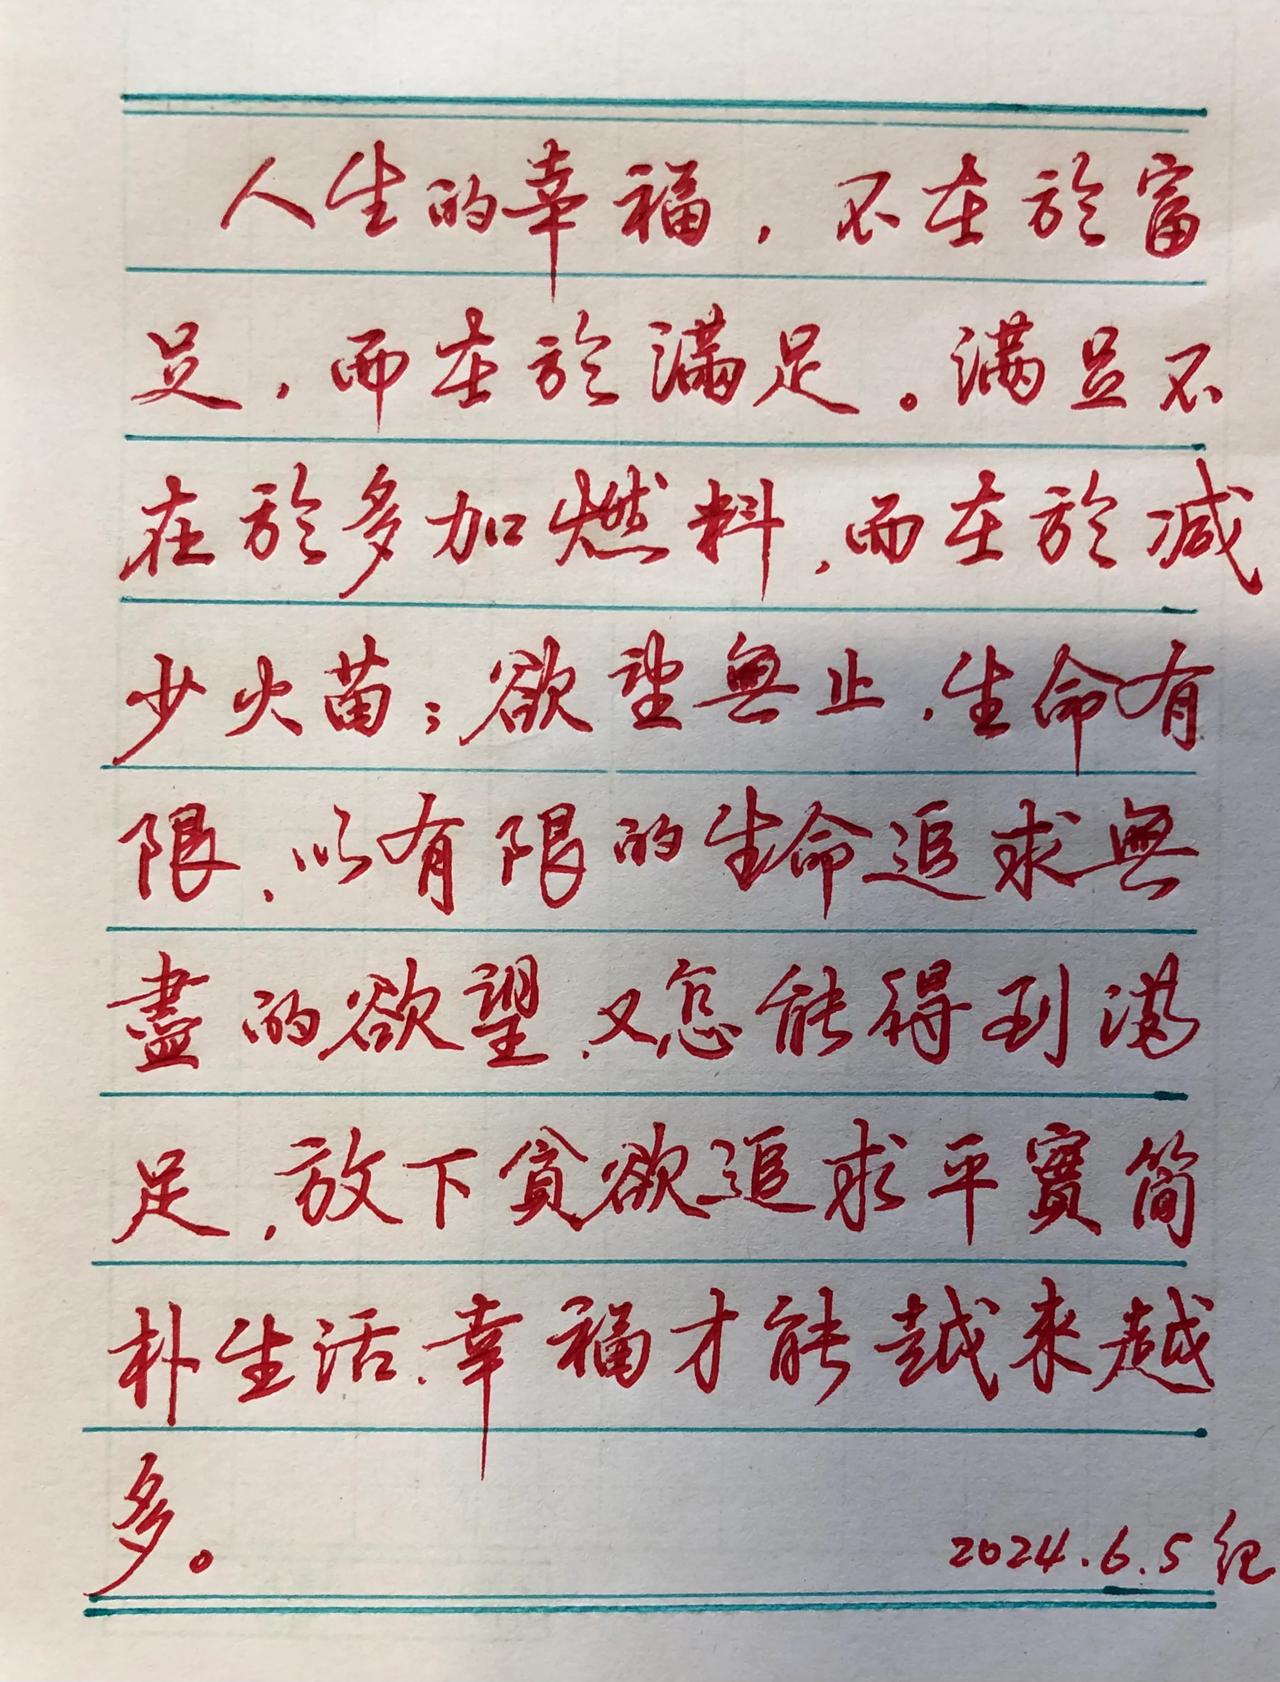 人生的幸福，不在於富
足，而在於滿足。满足不
在於多加燃料，而在於减
少火苗；欲望無止，生命有
限，以有限的生命追求無
盡的欲望，又怎能得到满
足，放下貪欲追求平實简
朴生活，幸福才能越来越
多。
2024.6.5 纪